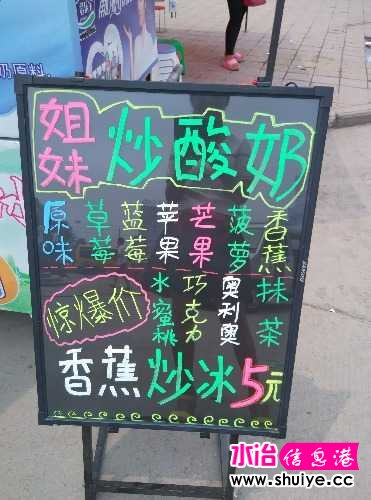 奶原料
姐妹 炒酸奶
原味 草莓 蓝莓 苹果 芒果 菠萝 香蕉
惊爆价 水蜜桃 巧克力 奥利奥 抹茶
香蕉 炒冰5元
水冶信息港
www.shuiye.cc